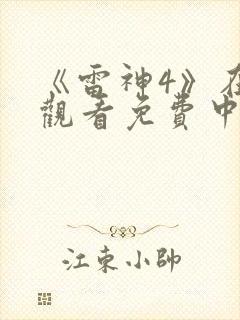 《雷神4》在
觀看免費中
江東小帥